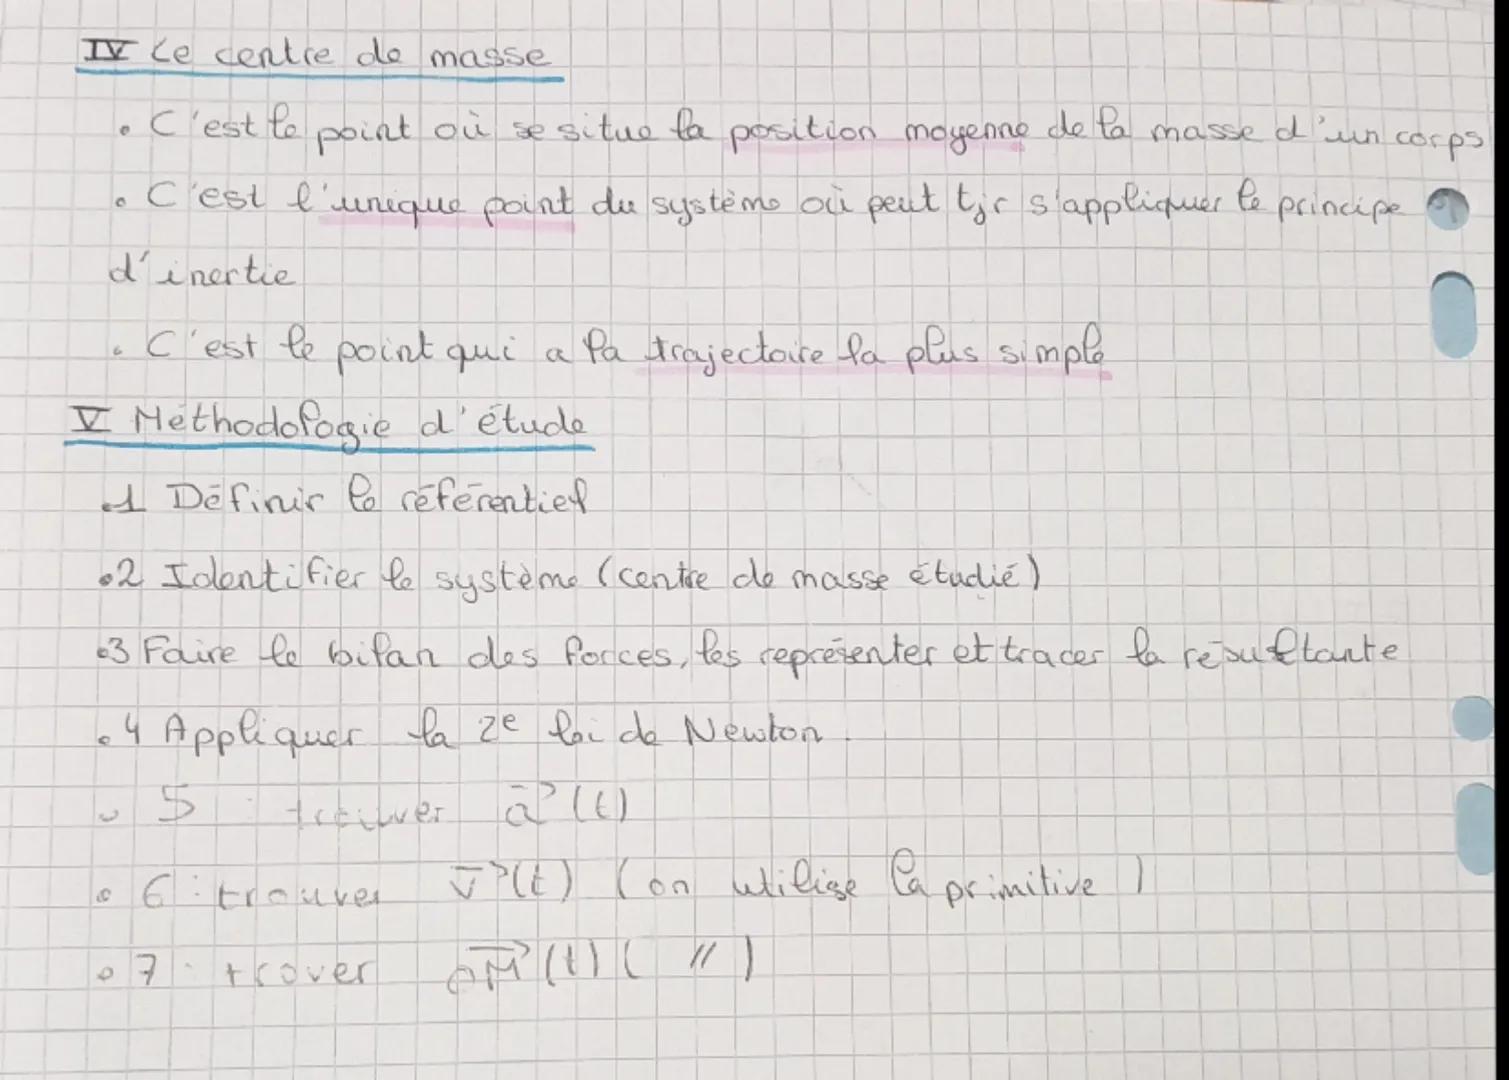 IV Le centre de masse
• C'est le point où se situe la position moyenne de la masse d'un corps
• C'est l'unique point du système où peut tjr s'appliquer le principe
d'inertie
• C'est le point qui a la trajectoire la plus simple
V Méthodologie d'étude
•1 Définir le référentiel
•2 Identifier le système (centre de masse étudié)
•3 Faire le bilan des forces, les représenter et tracer la résultante
•4 Appliquer la 2e loi de Newton.
• 5 : trouver a⃗(t)
• 6 : trouver v⃗(t) (on utilise la primitive)
• 7 : trover OM⃗(t) ( // )